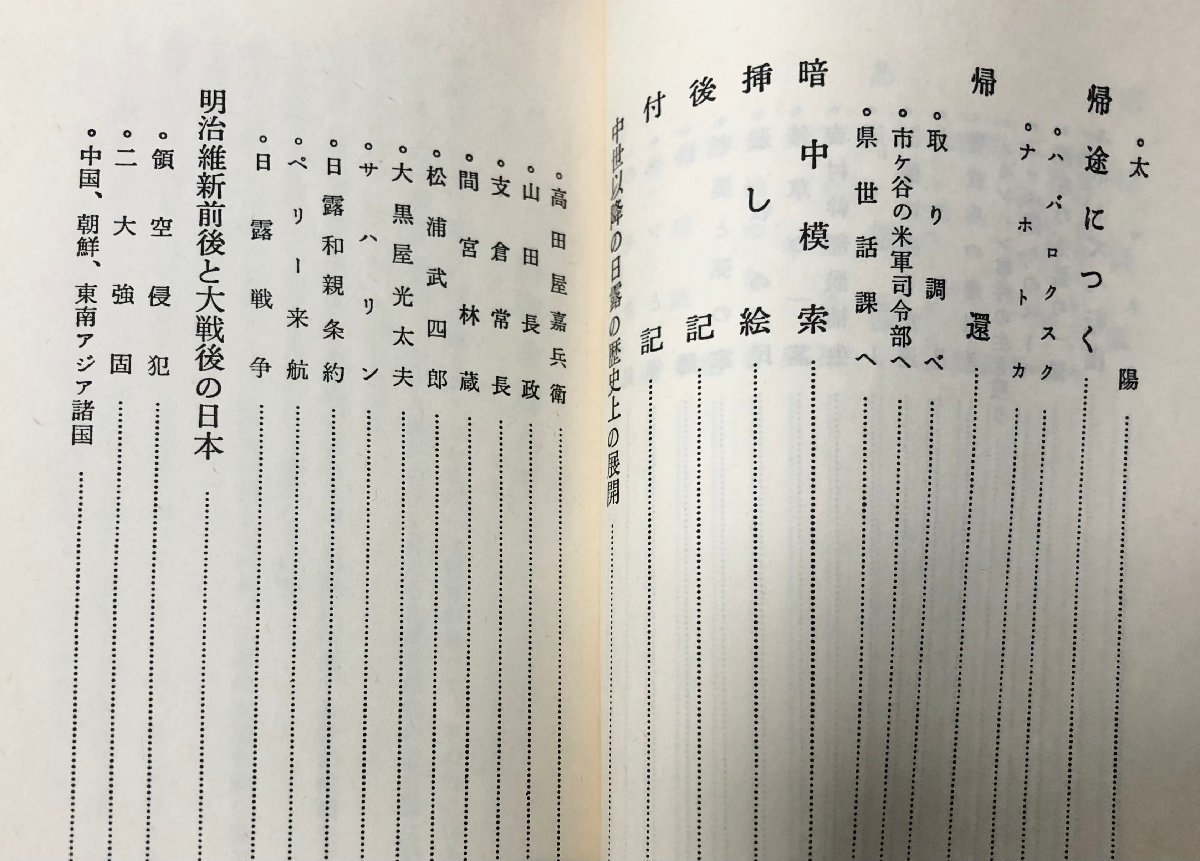 。太陽
帰途につく
。ハバロクスク
。ナホトカ
帰還
。取り調べ
。市ケ谷の米軍司令部へ
。県世話課へ
暗中模索
挿し絵
後記
付記
中世以降の日露の歴史上の展開
。高田屋嘉兵衛
。山田長政
。支倉常長
。間宮林蔵
。松浦武四郎
。大黒屋光太夫
。サハリン
。日露和親条約
。ペリー来航
。日露戦争
明治維新前後と大戦後の日本
。領空侵犯
。二大強固
。中国、朝鮮、東南アジア諸国